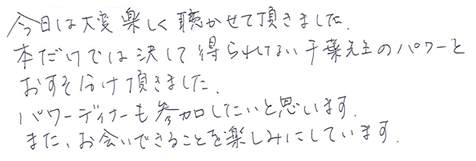 今日は大変楽しく聴かせて頂きました.
本だけでは決して得られない千葉先生のパワーと
おすそ分け頂きました.
パワーディナーも参加したいと思います.
また、お会いできることを楽しみにしています.